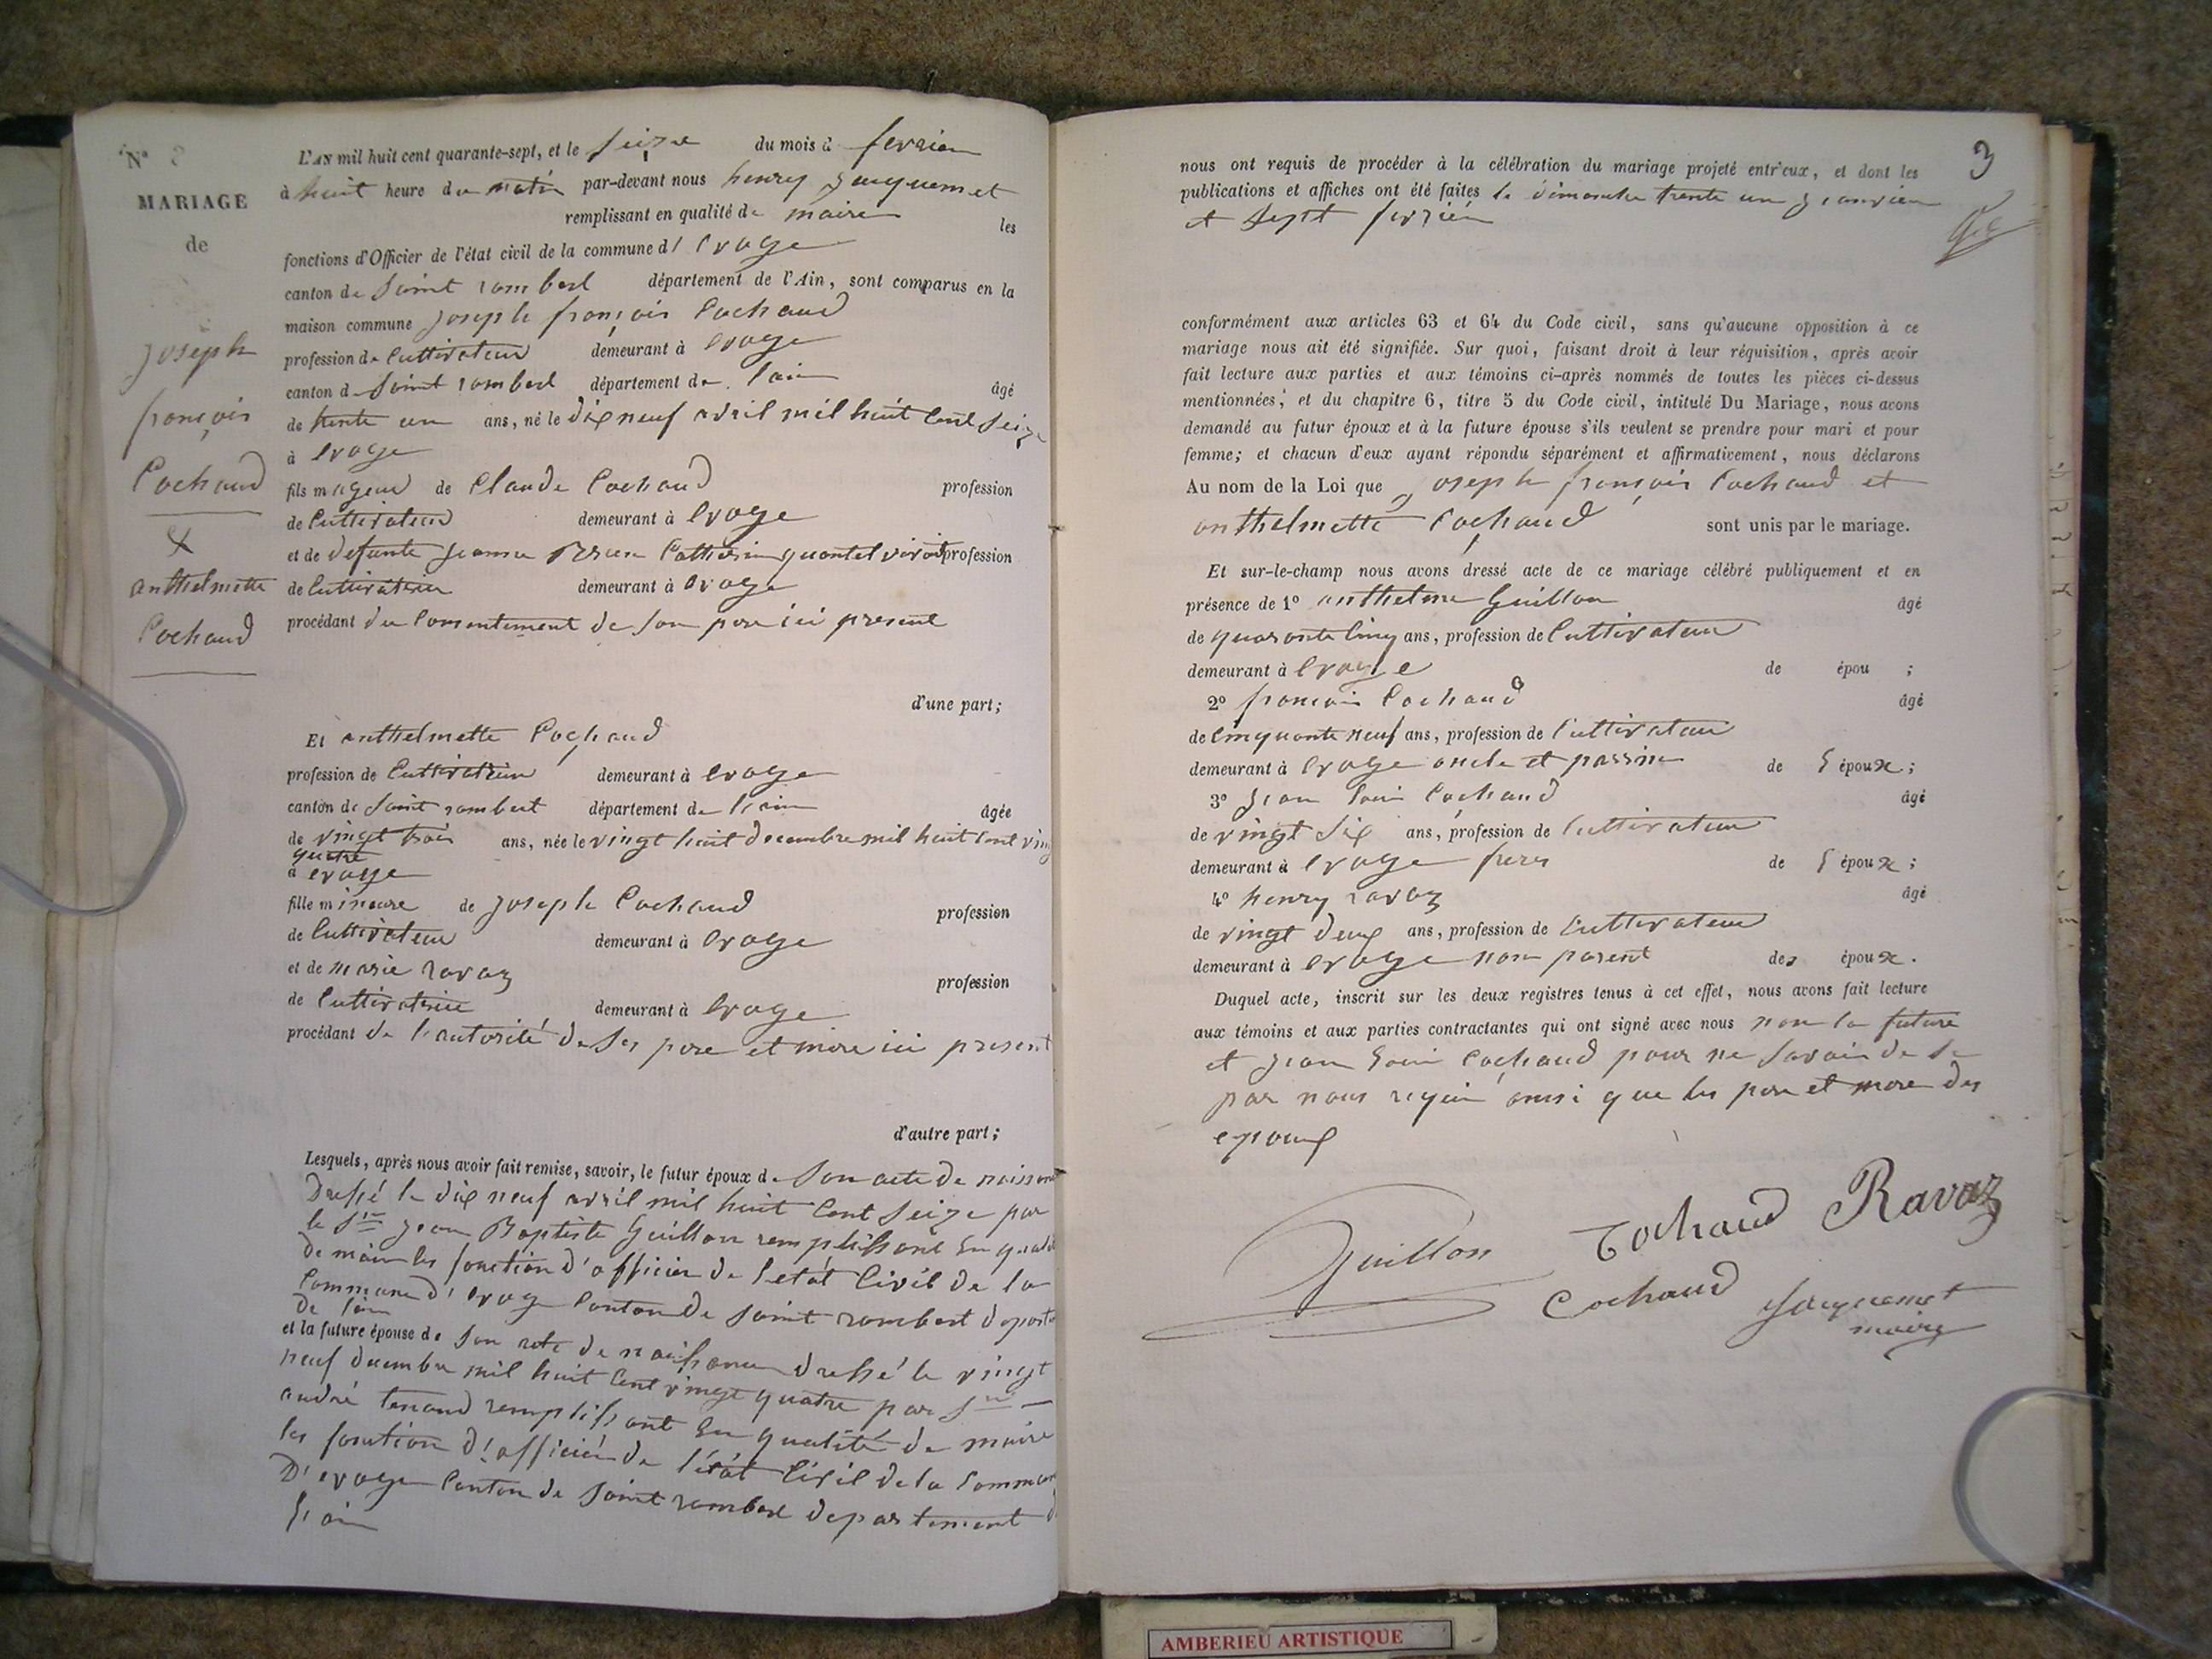 N° 3
MARIAGE
de
joseph
françois
Cochaud
&
anthelmette
Cochaud
L'AN mil huit cent quarante-sept, et le seize du mois d fevrier
à huit heure du matin par-devant nous henry jacquemet
remplissant en qualité de maire les
fonctions d'Officier de l'état civil de la commune d' evoge
canton de saint rambert département de l'Ain, sont comparus en la
maison commune joseph françois Cochaud
profession de Cultivateur demeurant à evoge
canton d saint rambert département de l'ain âgé
de trente un ans, né le dix neuf avril mil huit cent seize
à evoge
fils mageur de Claude Cochaud profession
de Cultivateur demeurant à evoge
et de defunte jeanne Catherine quantel vivait profession
de Cultivatrice demeurant à evoge
procédant du Consentement de son pere ici present
d'une part;
Et anthelmette Cochaud
profession de Cultivatrice demeurant à evoge
canton de saint rambert département de l'ain âgée
de vingt trois ans, née le vingt huit decembre mil huit cent vingt
quatre
à evoge
fille mineure de joseph Cochaud profession
de Cultivateur demeurant à evoge
et de marie ravaz profession
de Cultivatrice demeurant à evoge
procédant de l'autorité de ses pere et mere ici present
d'autre part;
Lesquels, après nous avoir fait remise, savoir, le futur époux de son acte de naissance
Dressé le dix neuf avril mil huit Cent seize par
le Sr jean Baptiste Guillon remplissant En qualité
de maire les fonction d'officier de l'etat Civil de la
Commune d'evoge Canton de saint rambert departe
de l'ain
et la future épouse de son acte de naissance dressé le vingt
neuf decembre mil huit Cent vingt quatre par Sr
andré tenand remplissant En qualité de maire
les fonction d'officier de l'état Civil de la Commune
D'evoge Canton de saint rambert departement d
l'ain
3
nous ont requis de procéder à la célébration du mariage projeté entr'eux, et dont les
publications et affiches ont été faites le dimanche trente un janvier
et sept fevrier
conformément aux articles 63 et 64 du Code civil, sans qu'aucune opposition à ce
mariage nous ait été signifiée. Sur quoi, faisant droit à leur réquisition, après avoir
fait lecture aux parties et aux témoins ci-après nommés de toutes les pièces ci-dessus
mentionnées, et du chapitre 6, titre 5 du Code civil, intitulé Du Mariage, nous avons
demandé au futur époux et à la future épouse s'ils veulent se prendre pour mari et pour
femme; et chacun d'eux ayant répondu séparément et affirmativement, nous déclarons
Au nom de la Loi que joseph françois Cochaud et
anthelmette Cochaud sont unis par le mariage.
Et sur-le-champ nous avons dressé acte de ce mariage célébré publiquement et en
présence de 1° anthelme Guillon âgé
de quarante Cinq ans, profession de Cultivateur
demeurant à evoge de épou ;
2° françois Cochaud âgé
de Cinquante neuf ans, profession de Cultivateur
demeurant à evoge oncle et parrin de l époux;
3° jean louis Cochaud âgé
de vingt six ans, profession de Cultivateur
demeurant à evoge frere de l époux;
4° henry ravaz âgé
de vingt deux ans, profession de Cultivateur
demeurant à evoge non parent des époux.
Duquel acte, inscrit sur les deux registres tenus à cet effet, nous avons fait lecture
aux témoins et aux parties contractantes qui ont signé avec nous non la future
et jean louis Cochaud pour ne savoir de ce
par nous requi ainsi que les pere et mere des
epoux
Guillon Cochaud Ravaz
Cochaud Jacquemet
maire
AMBERIEU ARTISTIQUE